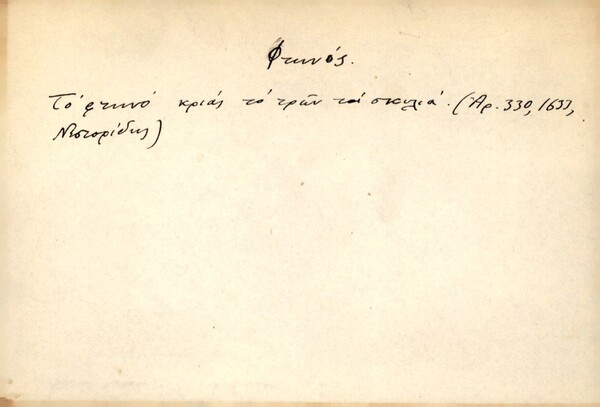 Φτηνός.
Τό φτηνό κριάς τό τρῶν τά σκυλιά. (Ἀρ. 330, 1633,
Νεστορίδης)